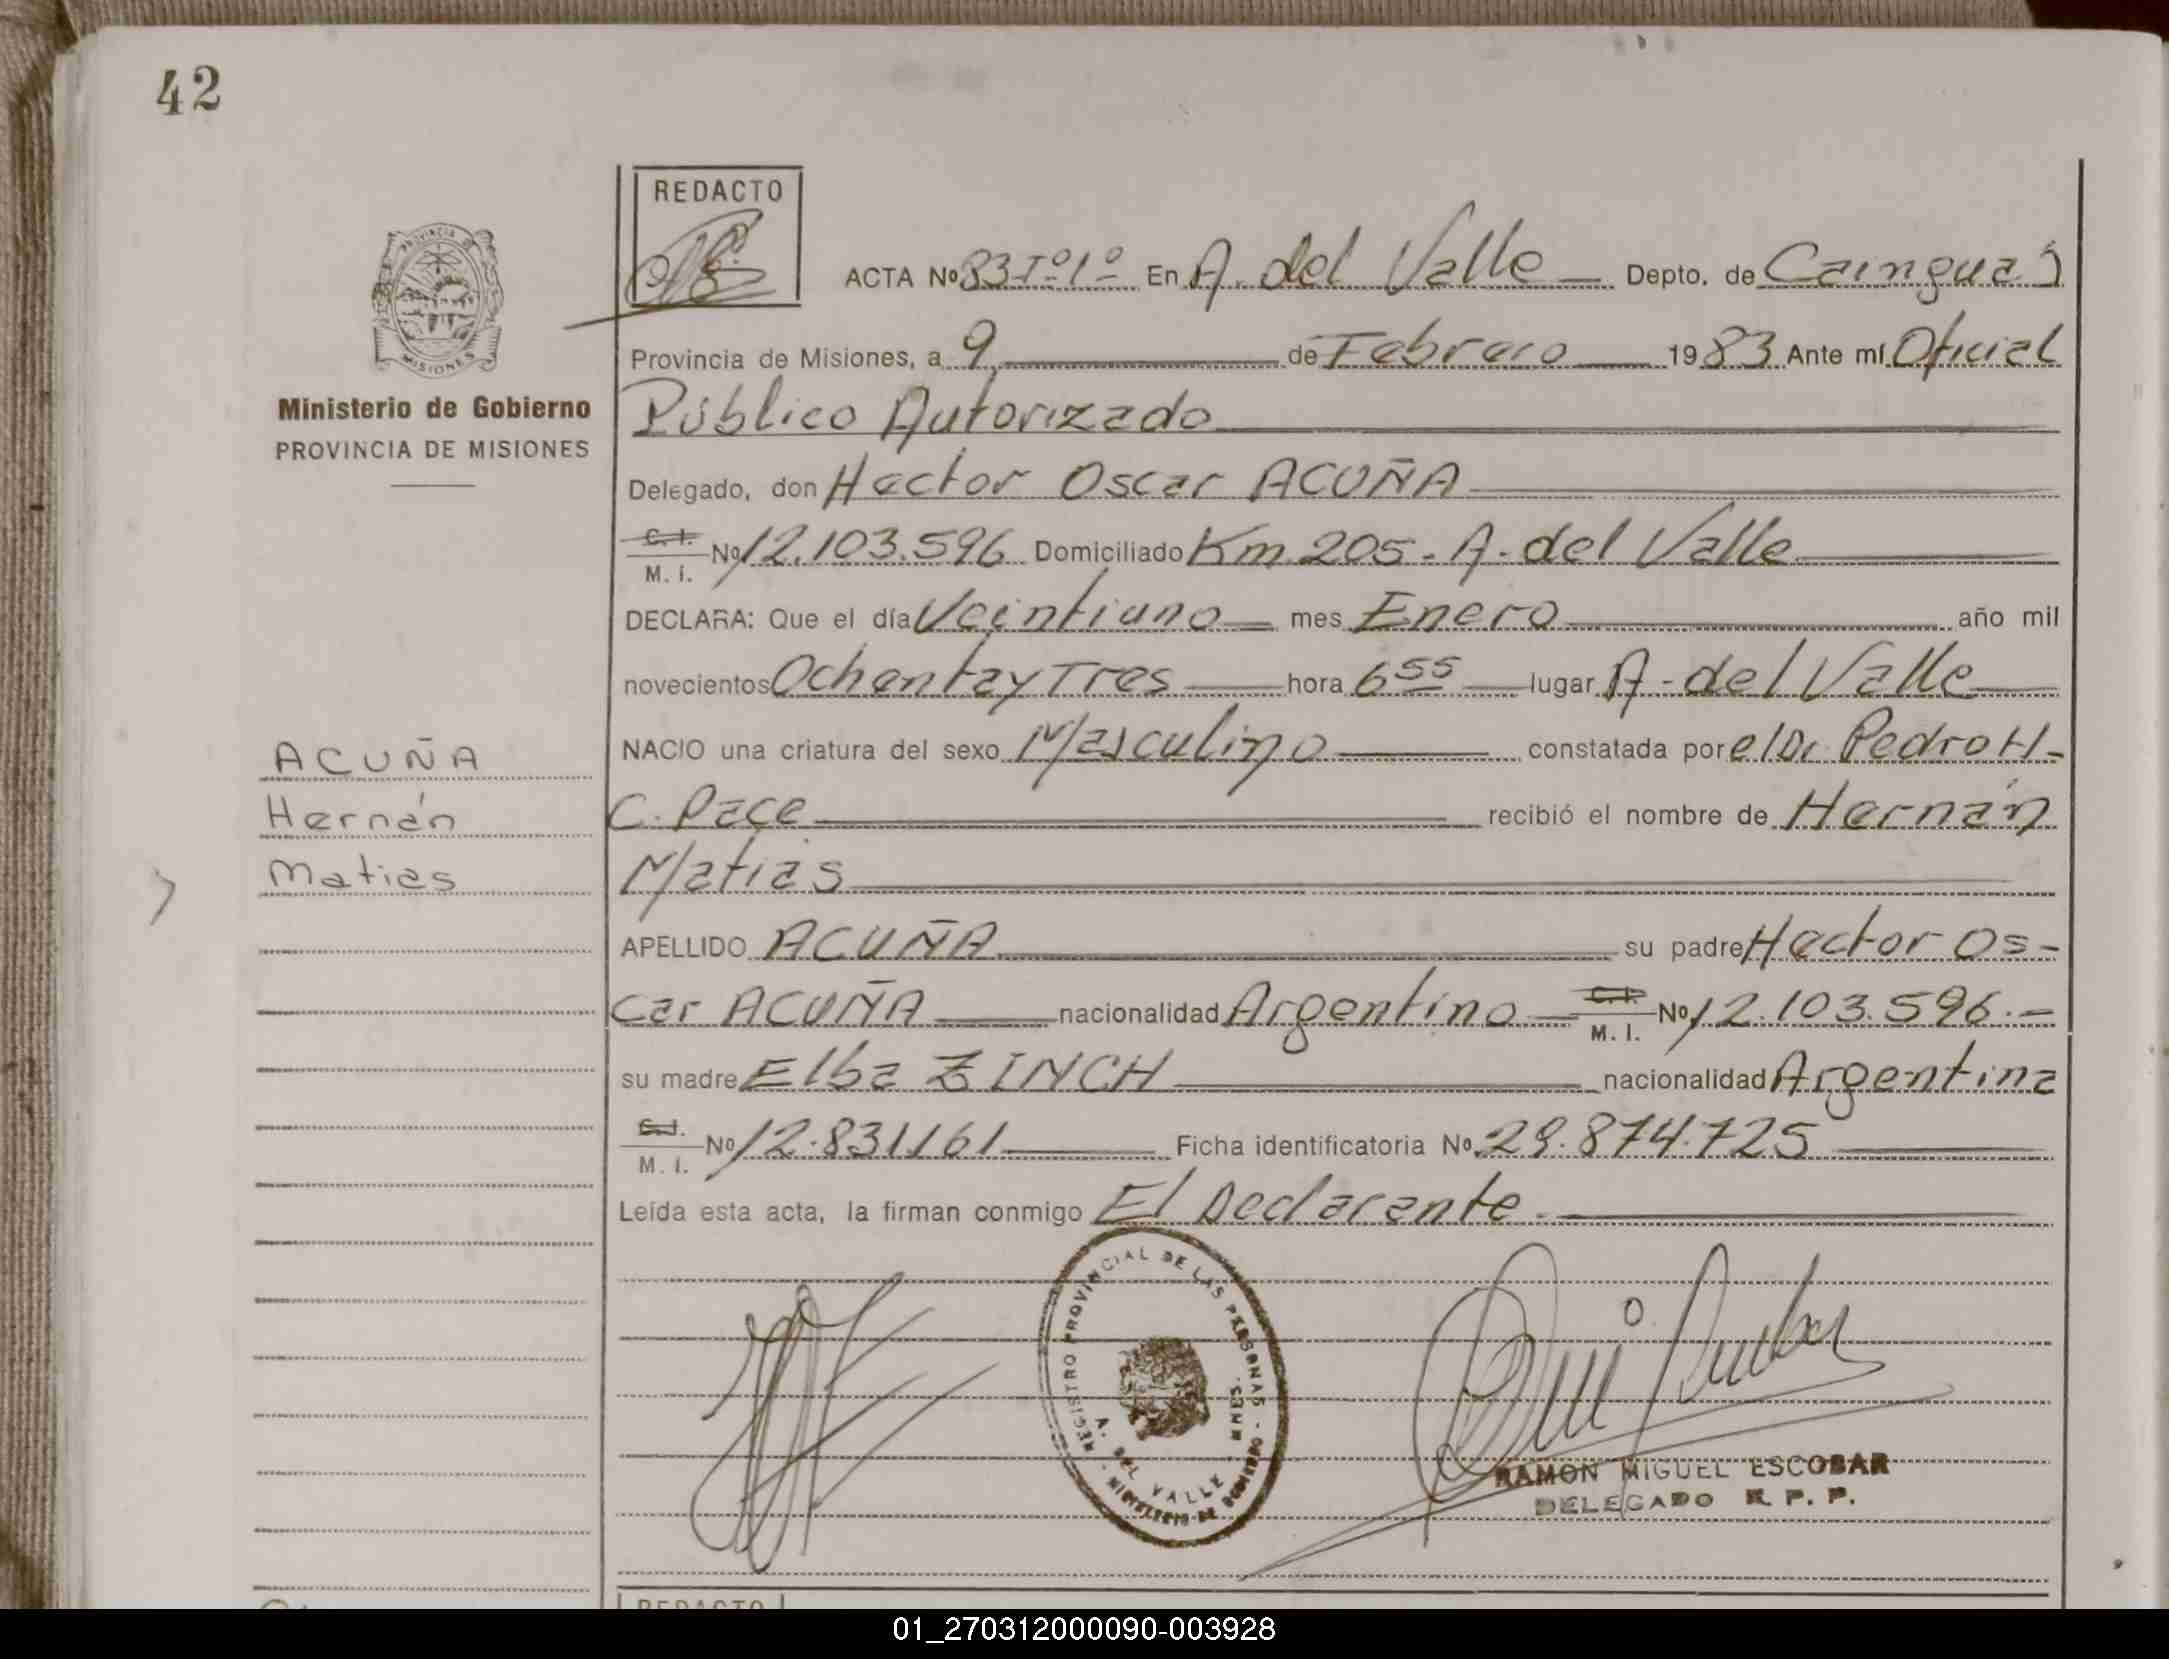 42
REDACTO
PROVINCIA DE
MISIONES
Ministerio de Gobierno
PROVINCIA DE MISIONES
ACTA Nº 83-Tº1º En A. del Valle Depto. de Cainguás
Provincia de Misiones, a 9 de Febrero 1983 Ante mí Oficial
Público Autorizado
Delegado, don Hector Oscar ACUÑA
C. I. M. I. Nº 12.103.596 Domiciliado Km 205 - A. del Valle
DECLARA: Que el día Veintiuno mes Enero año mil
novecientos Ochenta y Tres hora 6 55 lugar A - del Valle
ACUÑA
NACIO una criatura del sexo Masculino constatada por el Dr. Pedro H-
Hernán
C. Pace recibió el nombre de Hernán
Matias
Matias
APELLIDO ACUÑA su padre Hector Os-
car ACUÑA nacionalidad Argentino C. I. M. I. Nº 12.103.596.-
su madre Elba ZINCH nacionalidad Argentina
C. I. M. I. Nº 12.831161 Ficha identificatoria Nº 29.874.725
Leída esta acta, la firman conmigo El Declarante.
REGISTRO PROVINCIAL DE LAS PERSONAS - MNES.
A. DEL VALLE
MINISTERIO DE GOBIERNO
RAMON MIGUEL ESCOBAR
DELEGADO R. P. P.
REDACTO
01_270312000090-003928